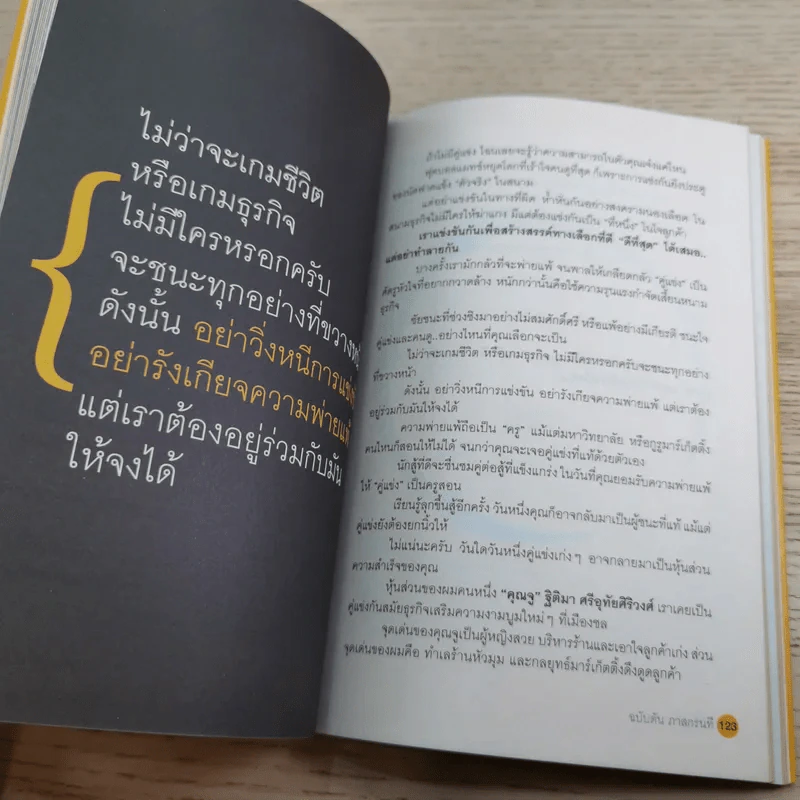 ไม่ว่าจะเกมชีวิต
หรือเกมธุรกิจ
ไม่มีใครหรอกครับ
จะชนะทุกอย่างที่ขวางหน้
ดังนั้น อย่าวิ่งหนีการแข่ง
อย่ารังเกียจความพ่ายแพ้
แต่เราต้องอยู่ร่วมกับมัน
ให้จงได้
ถ้าไม่มีคู่แข่ง ไอนเลยจะรู้ว่าความสามารถในตัวคุณเจ๋งแค่ไหน
ฟุตบอลแมทช์หยุดโลกที่เร้าใจคนดูที่สุด ก็เพราะการแข่งกันยิงประตู
ของนัดฟาดแข้ง “ตัวจริง” ในสนาม
แต่อย่าแข่งขันในทางที่ผิด ห้ำหั่นกันอย่างสงครามนองเลือด ใน
สนามธุรกิจไม่มีใครให้ฆ่าแกง มีแต่ต้องแข่งกันเป็น “ที่หนึ่ง” ในใจลูกค้า
เราแข่งขันกันเพื่อสร้างสรรค์ทางเลือกที่ดี “ดีที่สุด” ได้เสมอ..
แต่อย่าทำลายกัน
บางครั้งเรามักกลัวที่จะพ่ายแพ้ จนพาลให้เกลียดกลัว “คู่แข่ง” เป็น
ศัตรูหัวใจที่อยากกวาดล้าง หนักกว่านั้นคือใช้ความรุนแรงกำจัดเสี้ยนหนาม
ธุรกิจ
ชัยชนะที่ช่วงชิงมาอย่างไม่สมศักดิ์ศรี หรือแพ้อย่างมีเกียรติ ชนะใจ
คู่แข่งและคนดู..อย่างไหนที่คุณเลือกจะเป็น
ไม่ว่าจะเกมชีวิต หรือเกมธุรกิจ ไม่มีใครหรอกครับจะชนะทุกอย่าง
ที่ขวางหน้า
ดังนั้น อย่าวิ่งหนีการแข่งขัน อย่ารังเกียจความพ่ายแพ้ แต่เราต้อง
อยู่ร่วมกับมันให้จงได้
ความพ่ายแพ้ถือเป็น “ครู” แม้แต่มหาวิทยาลัย หรือกูรูมาร์เก็ตติ้ง
คนไหนก็สอนให้ไม่ได้ จนกว่าคุณจะเจอคู่แข่งที่แท้ด้วยตัวเอง
นักสู้ที่ดีจะชื่นชมคู่ต่อสู้ที่แข็งแกร่ง ในวันที่คุณยอมรับความพ่ายแพ้
ให้ “คู่แข่ง” เป็นครูสอน
เรียนรู้ลุกขึ้นสู้อีกครั้ง วันหนึ่งคุณก็อาจกลับมาเป็นผู้ชนะที่แท้ แม้แต่
คู่แข่งยังต้องยกนิ้วให้
ไม่แน่นะครับ วันใดวันหนึ่งคู่แข่งเก่งๆ อาจกลายมาเป็นหุ้นส่วน
ความสำเร็จของคุณ
หุ้นส่วนของผมคนหนึ่ง “คุณจู” ฐิติมา ศรีอุทัยศิริวงศ์ เราเคยเป็น
คู่แข่งกันสมัยธุรกิจเสริมความงามบูมใหม่ๆ ที่เมืองชล
จุดเด่นของคุณจูเป็นผู้หญิงสวย บริหารร้านและเอาใจลูกค้าเก่ง ส่วน
จุดเด่นของผมคือ ทำเลร้านหัวมุม และกลยุทธ์มาร์เก็ตติ้งดึงดูดลูกค้า
ฉบับตัน ภาสกรนที 123